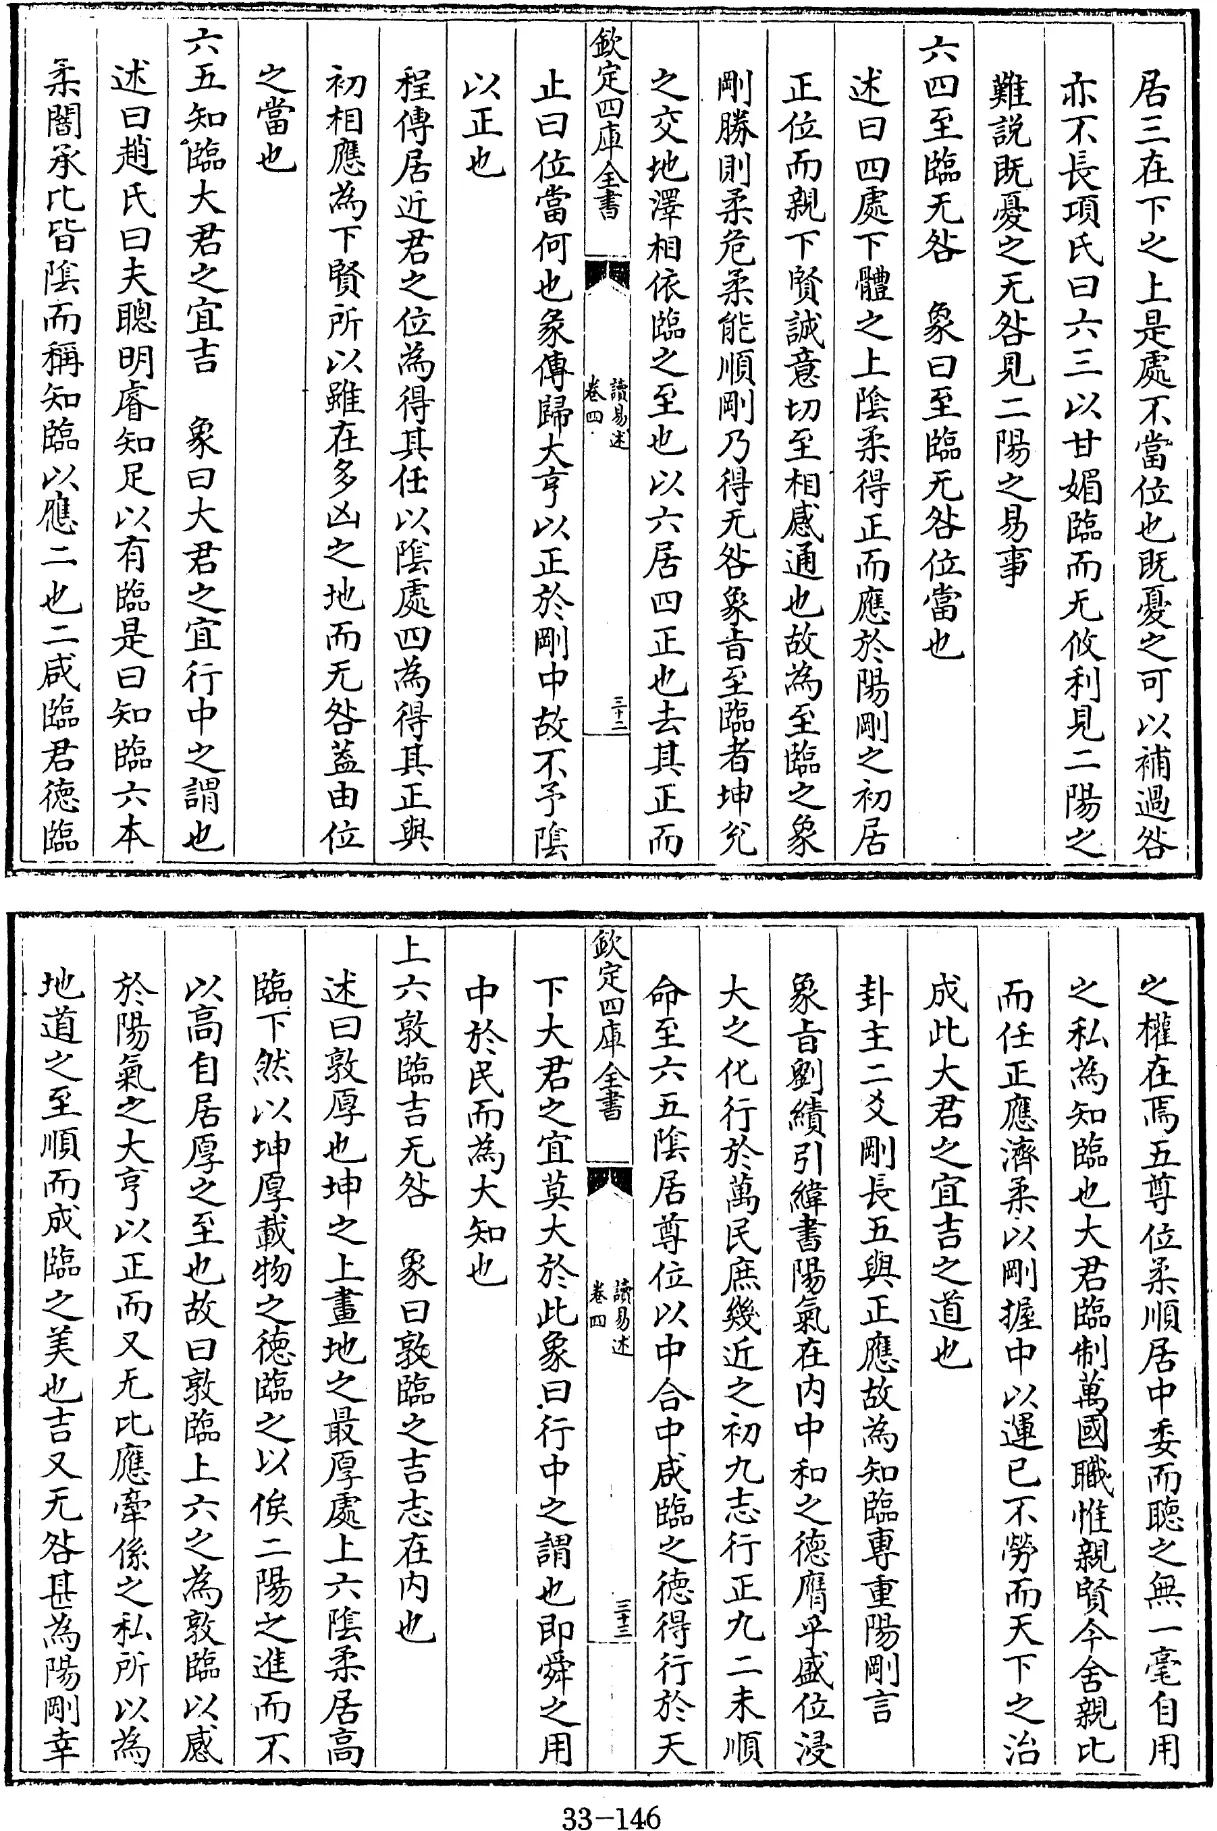 居三在下之上是處不當位也既憂之可以補過咎
亦不長項氏曰六三以甘媚臨而无攸利見二陽之
難説既憂之无咎見二陽之易事
六四至臨无咎　象曰至臨无咎位當也
述曰四處下體之上陰柔得正而應於陽剛之初居
正位而親下賢誠意切至相感通也故為至臨之象
剛勝則柔危柔能順剛乃得无咎象㫖至臨者坤兊
之交地澤相依臨之至也以六居四正也去其正而
欽定四庫全書
讀易述
卷四
三十二
止曰位當何也彖傳歸大亨以正於剛中故不予陰
以正也
程傳居近君之位為得其任以陰處四為得其正與
初相應為下賢所以雖在多凶之地而无咎葢由位
之當也
六五知臨大君之宜吉　象曰大君之宜行中之謂也
述曰趙氏曰夫聰明睿知足以有臨是曰知臨六本
柔闇承比皆陰而稱知臨以應二也二咸臨君徳臨
之權在焉五尊位柔順居中委而聽之無一毫自用
之私為知臨也大君臨制萬國職惟親賢今舍親比
而任正應濟柔以剛握中以運已不勞而天下之治
成此大君之宜吉之道也
卦主二爻剛長五與正應故為知臨專重陽剛言
象㫖劉績引緯書陽氣在内中和之徳膺乎盛位浸
大之化行於萬民庶幾近之初九志行正九二未順
命至六五陰居尊位以中合中咸臨之徳得行於天
欽定四庫全書
讀易述
卷四
三十三
下大君之宜莫大於此象曰行中之謂也即舜之用
中於民而為大知也
上六敦臨吉无咎　象曰敦臨之吉志在内也
述曰敦厚也坤之上畫地之最厚處上六陰柔居高
臨下然以坤厚載物之徳臨之以俟二陽之進而不
以高自居厚之至也故曰敦臨上六之為敦臨以感
於陽氣之大亨以正而又无比應牽係之私所以為
地道之至順而成臨之美也吉又无咎甚為陽剛幸
33-146